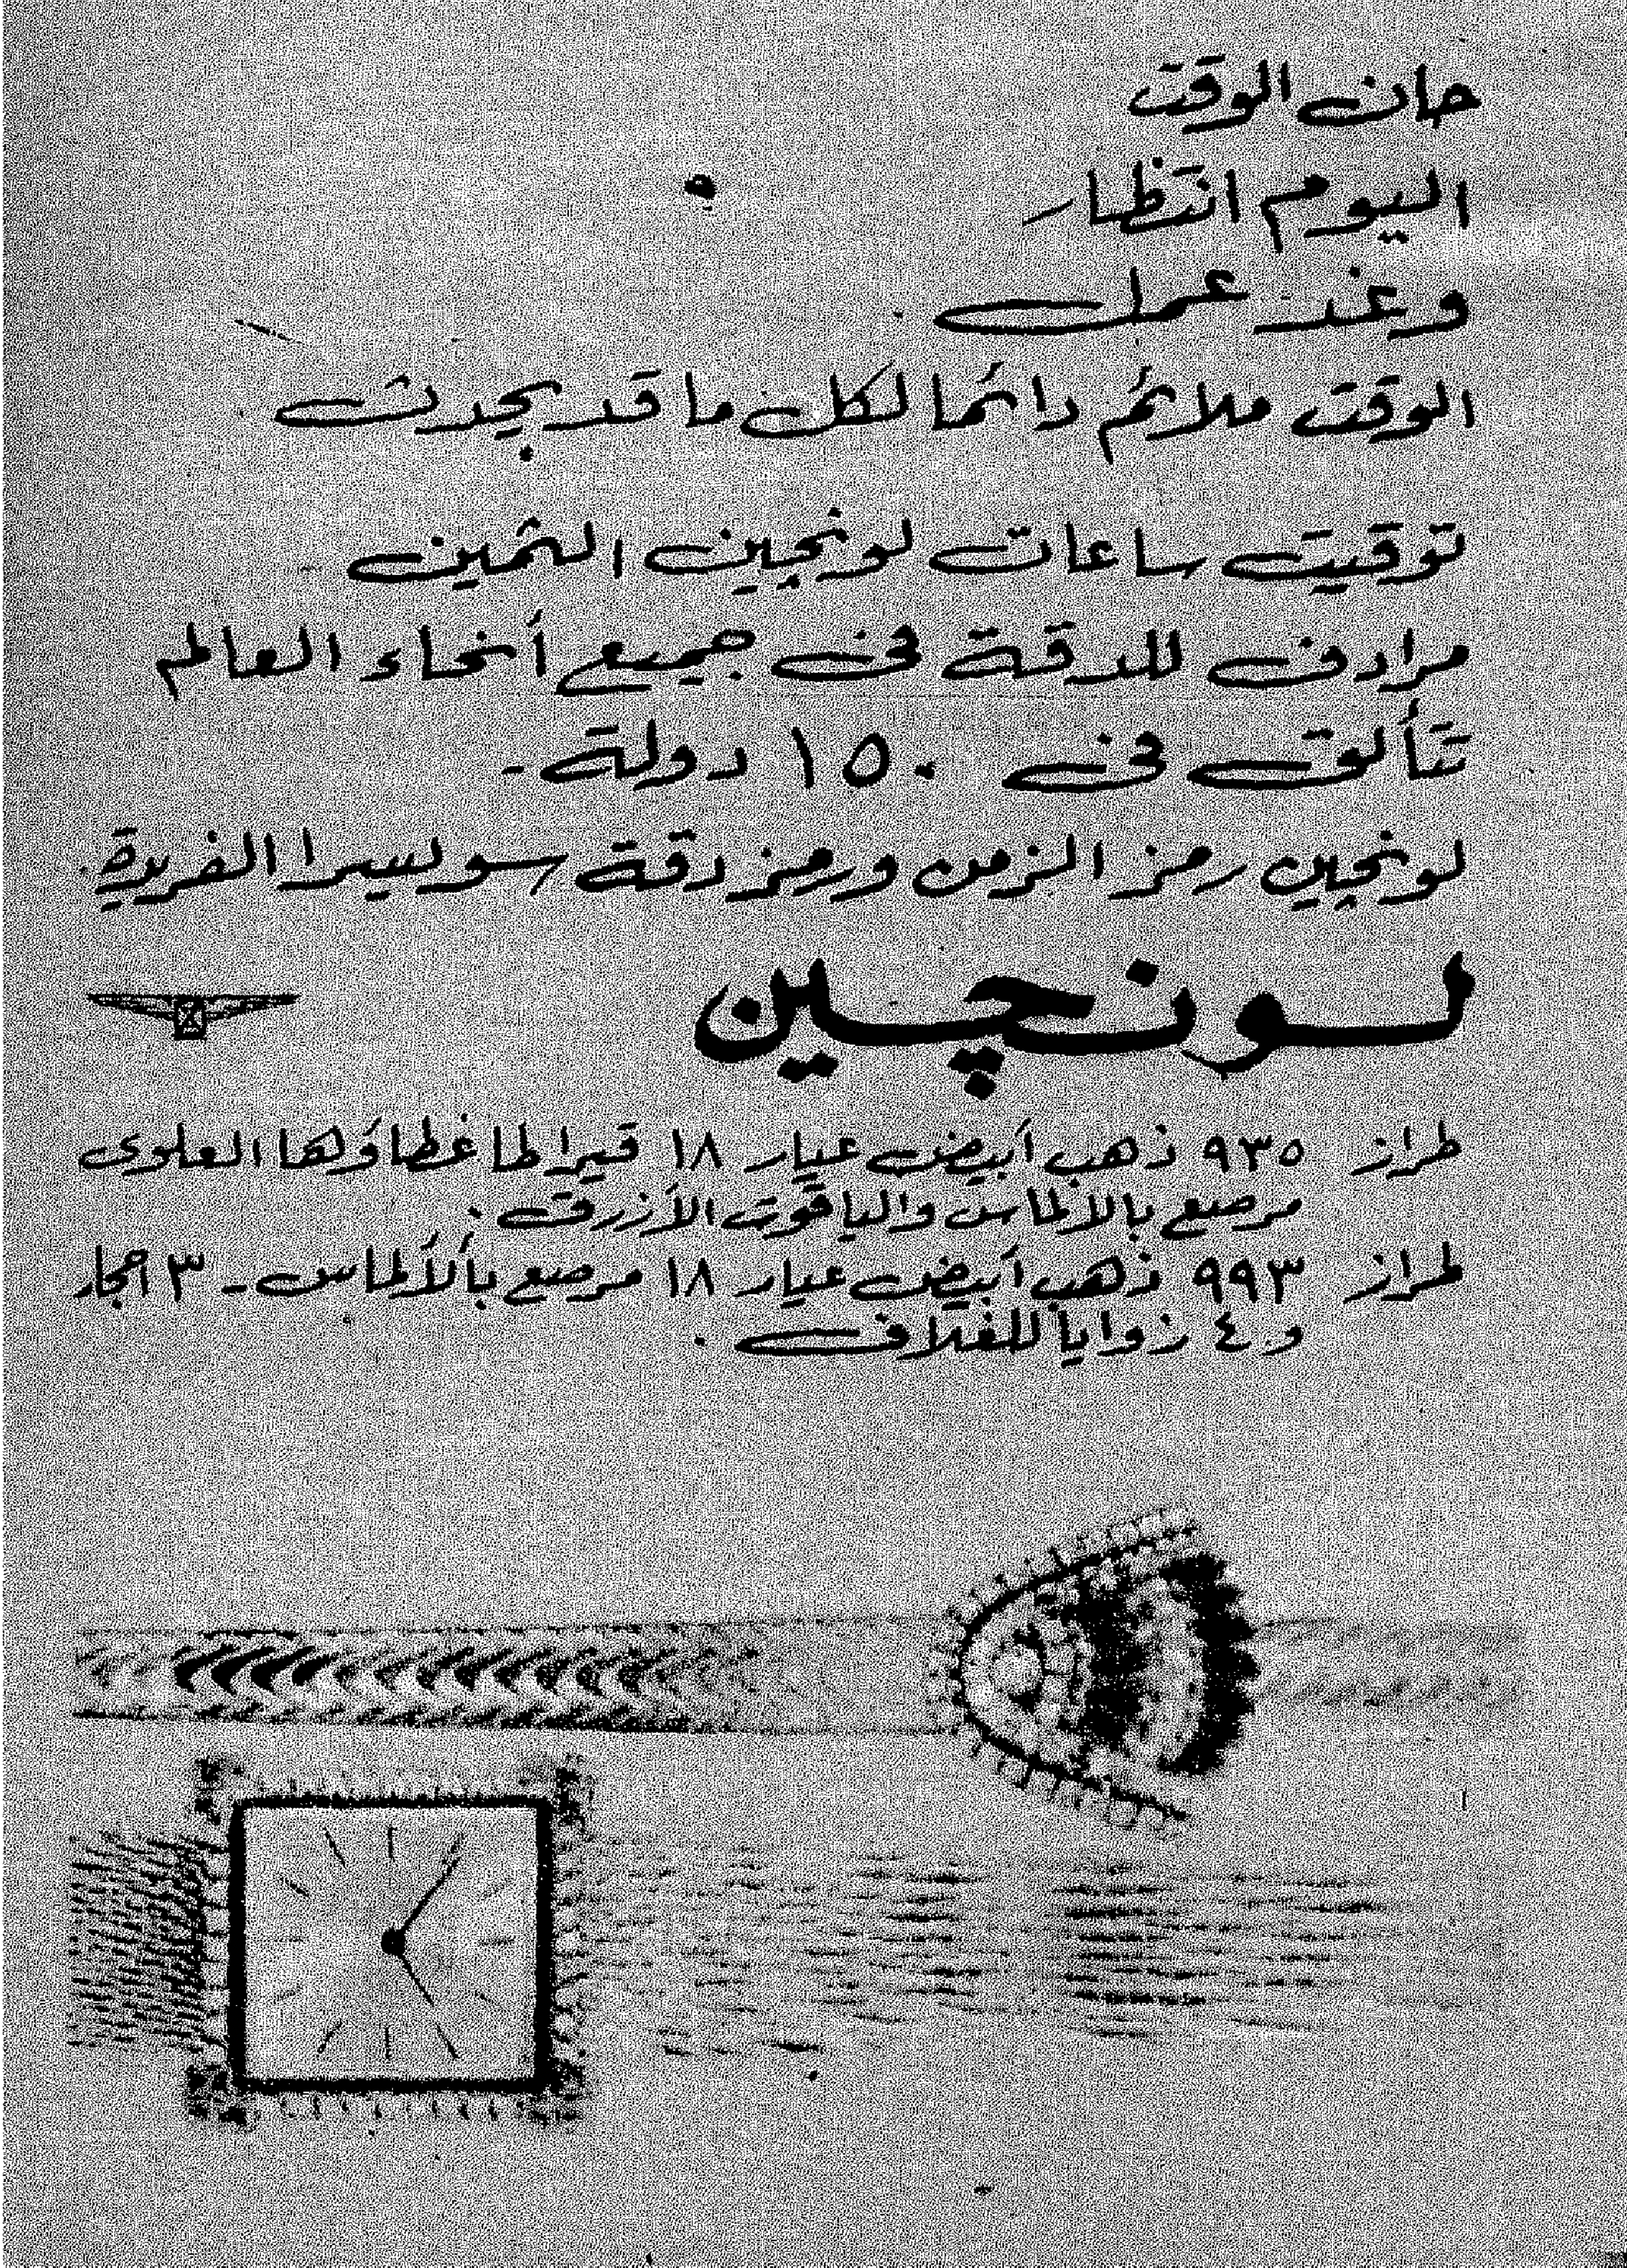 حان الوقت
اليوم انتظار
وغد عمل
الوقت ملائم دائما لكل ما قد يحدث
توقيت ساعات لونچين الثمين
مرادف للدقة فى جميع أنحاء العالم
تتألق فى ١٥٠ دولة -
لونچين رمز الزمن ورمز دقة سوليسرا الفريدة.
لونچين
طراز ٩٣٥ ذهب أبيض عيار ١٨ قيراطا غطاؤلها العلوى
مرصع بالألماس والياقوت الأزرق .
طراز ٩٩٣ ذهب أبيض عيار ١٨ مرصع بألألماس - ٣ احجار
و ٤ زوايا للغلاف .